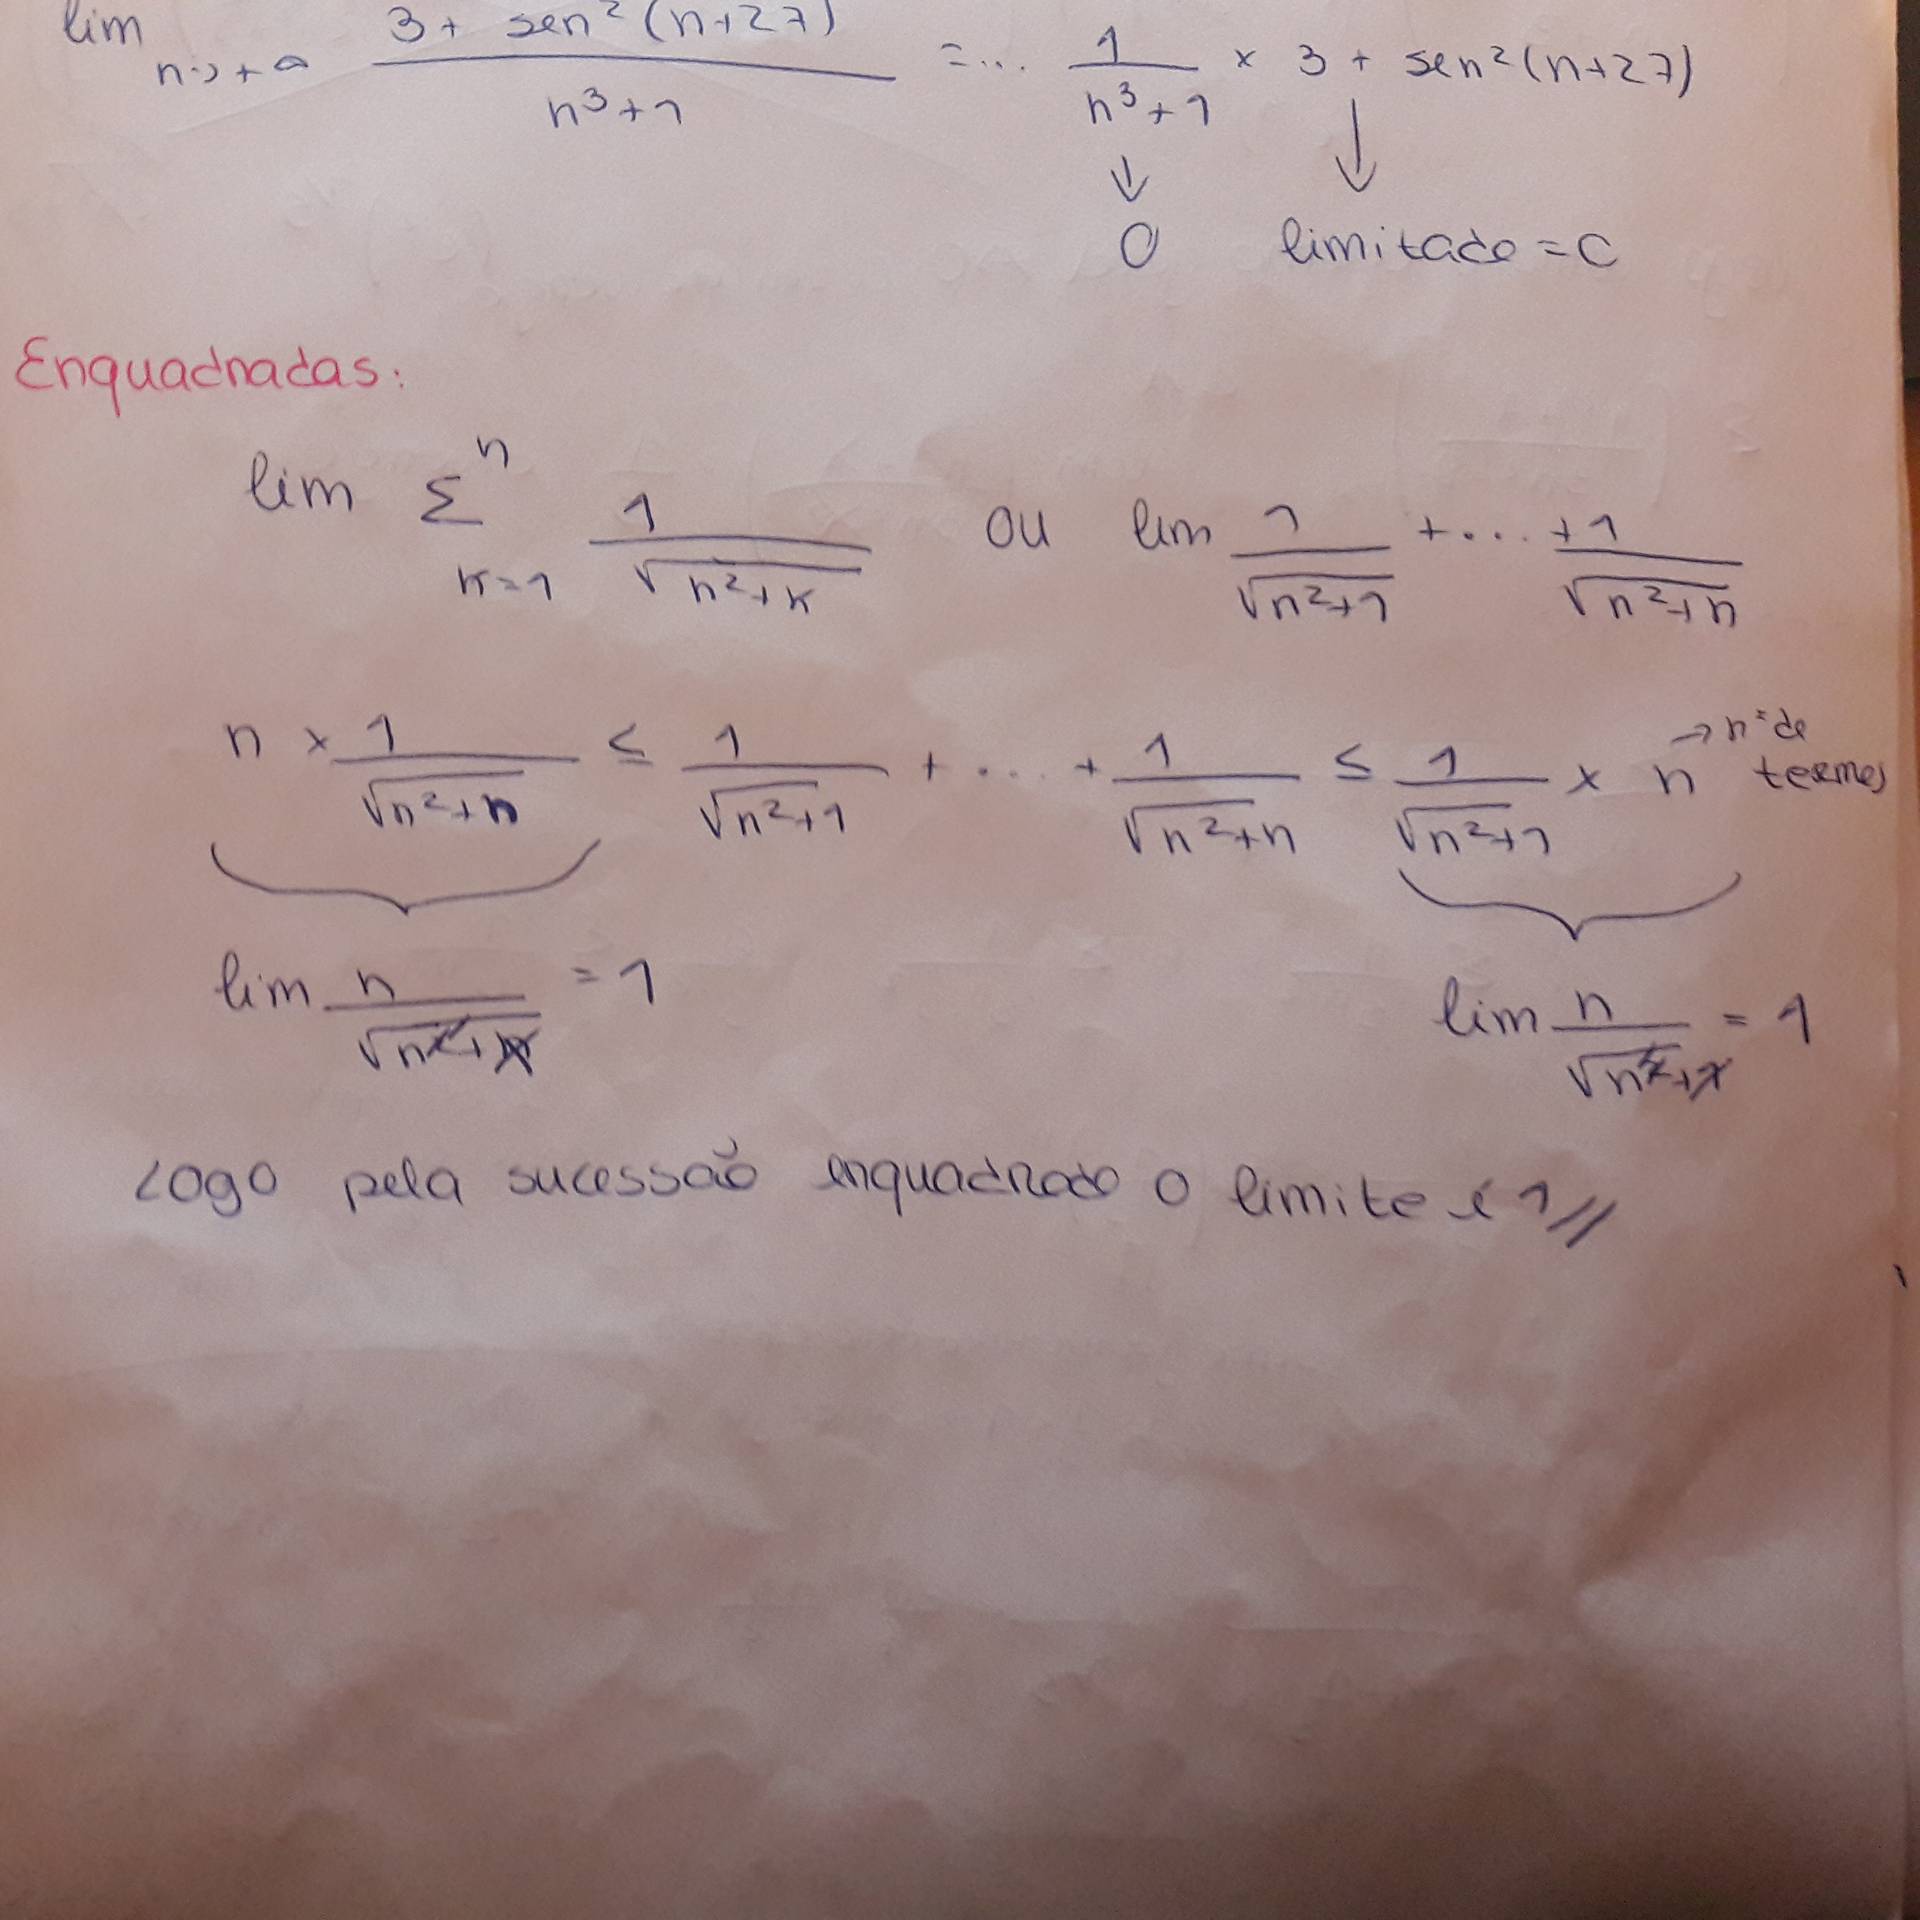 lim n→+∞ (3 + sen²(n+27))/(n³+1) =... 1/(n³+1) × 3 + sen²(n+27)
↓ ↓
0 limitado = C
Enquadradas:
lim Σ^n_{k=1} 1/√(n²+k) ou lim 1/√(n²+1) + ... + 1/√(n²+n)
n × 1/√(n²+n) ≤ 1/√(n²+1) + ... + 1/√(n²+n) ≤ 1/√(n²+1) × n → nº de termos
lim n/√(n²+n) = 1 lim n/√(n²+1) = 1
Logo pela sucessão enquadrado o limite é 1//